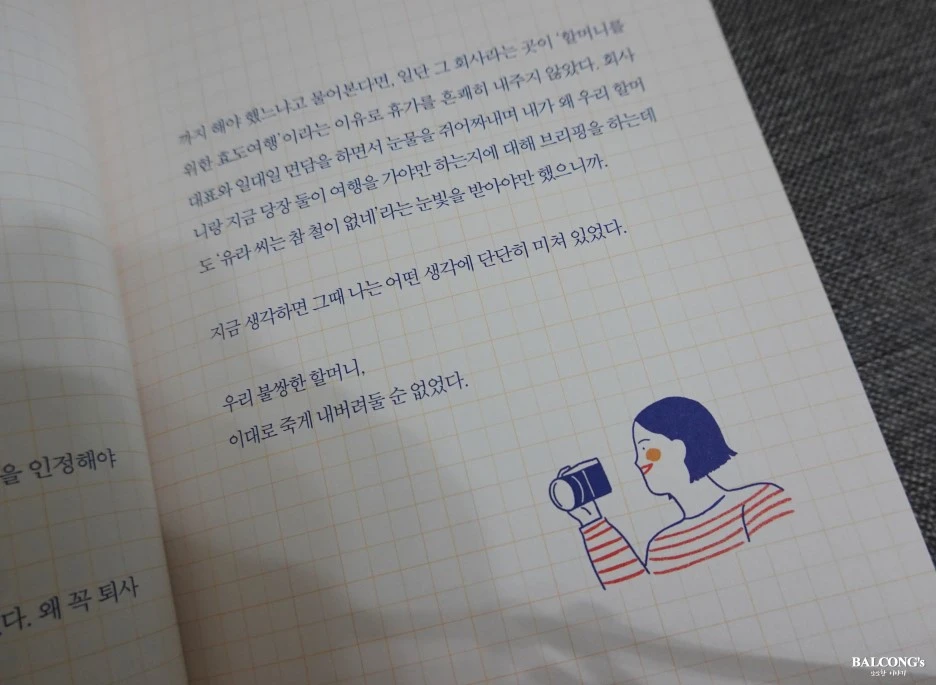 을 인정해야
다. 왜 꼭 퇴사
까지 해야 했느냐고 물어본다면, 일단 그 회사라는 곳이 '할머니를
위한 효도여행'이라는 이유로 휴가를 흔쾌히 내주지 않았다. 회사
대표와 일대일 면담을 하면서 눈물을 쥐어짜내며 내가 왜 우리 할머
니랑 지금 당장 둘이 여행을 가야만 하는지에 대해 브리핑을 하는데
도 '유라 씨는 참 철이 없네'라는 눈빛을 받아야만 했으니까.
지금 생각하면 그때 나는 어떤 생각에 단단히 미쳐 있었다.
우리 불쌍한 할머니,
이대로 죽게 내버려둘 순 없었다.
BALCONG's